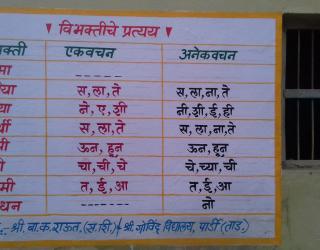 विभक्तीचे प्रत्यय
एकवचन अनेकवचन
- - - -
स, ला, ते स, ला, ना, ते
ने, ए, शी नी, शी, ई, ही
स, ला, ते स, ला, ना, ते
ऊन, हून ऊन, हून
चा, ची, चे चे, च्या, ची
त, ई, आ त, ई, आ
- - - - - - नो
श्री. बा. क. राऊत. (स. शि.) श्री. गोविंद विद्यालय, पार्डी (ताड.)